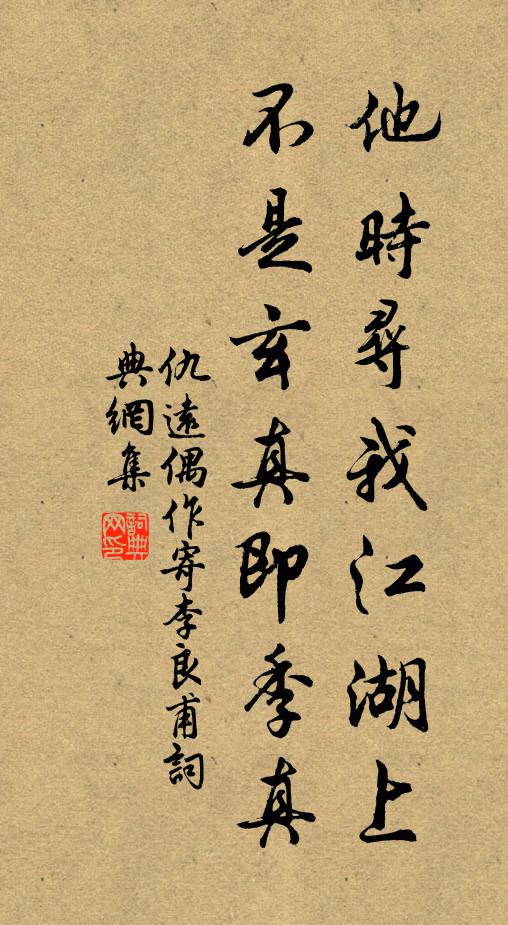 他時尋我江湖上
不是玄真即季真
仇遠偶作寄李良甫詞
典網集
詞典
网印